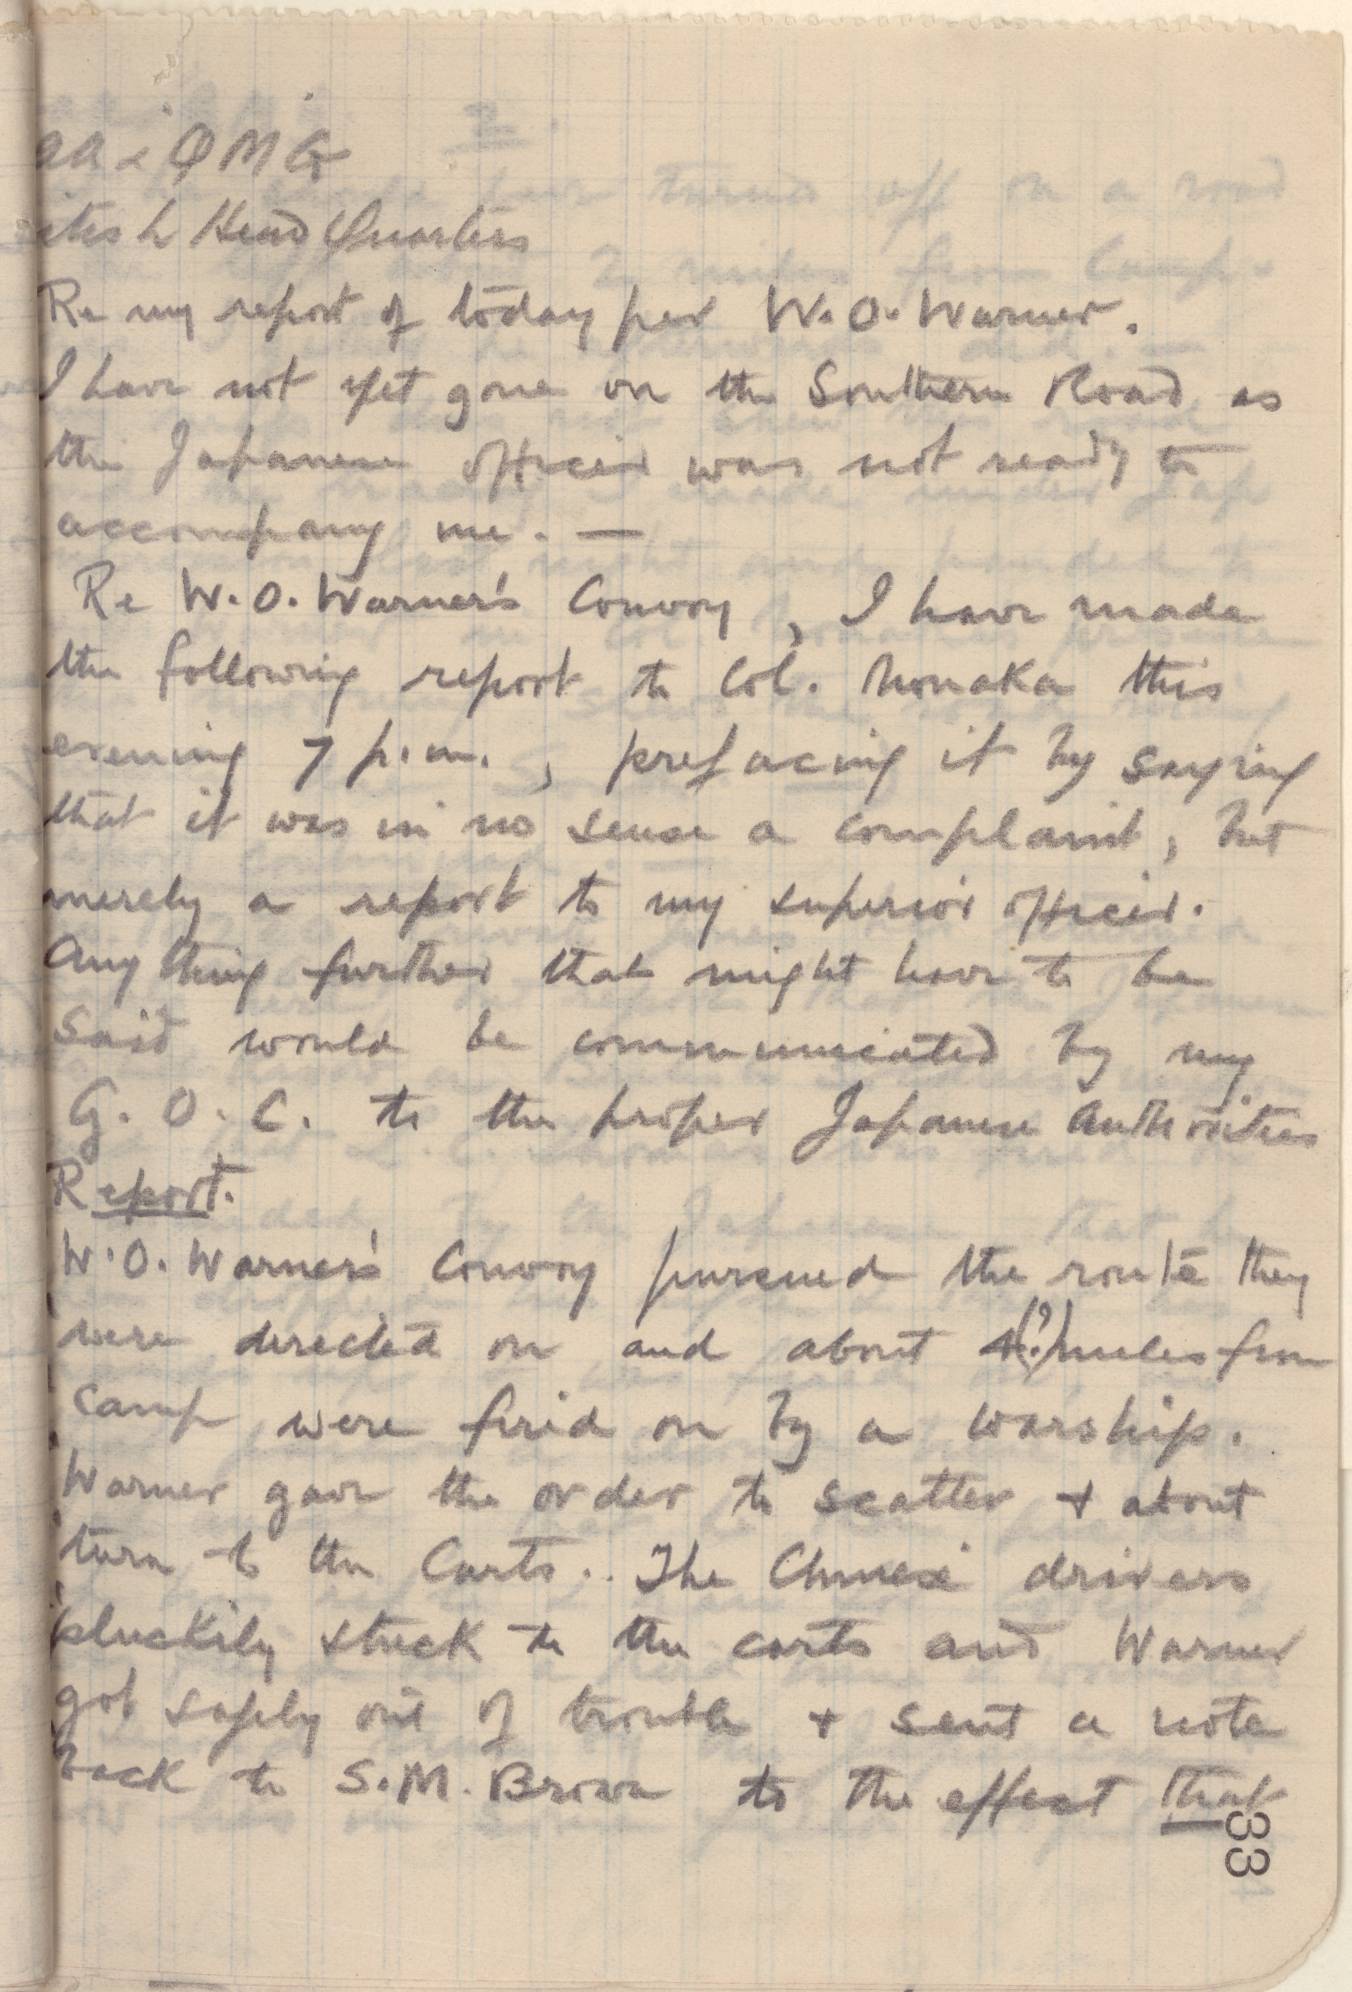 AA & QMG
itish Head Quarters
Re my report of today per W.O. Warner.
I have not yet gone on the Southern Road as
the Japanese officer was not ready to
accompany me. —
Re W.O. Warner's Convoy, I have made
the following report to Col. Nonaka this
evening 7 p.m., prefacing it by saying
that it was in no sense a complaint, but
merely a report to my superior officer.
Any thing further that might have to be
said would be communicated by my
G.O.C. to the proper Japanese Authorities
Report.
W.O. Warner's Convoy pursued the route they
were directed on and about 4(?) miles from
camp were fired on by a warship.
Warner gave the order to scatter & about
turn to the Carts.. The Chinese drivers
pluckily stuck to the carts and Warner
got safely out of trouble & sent a note
back to S.M. Brown to the effect that
33